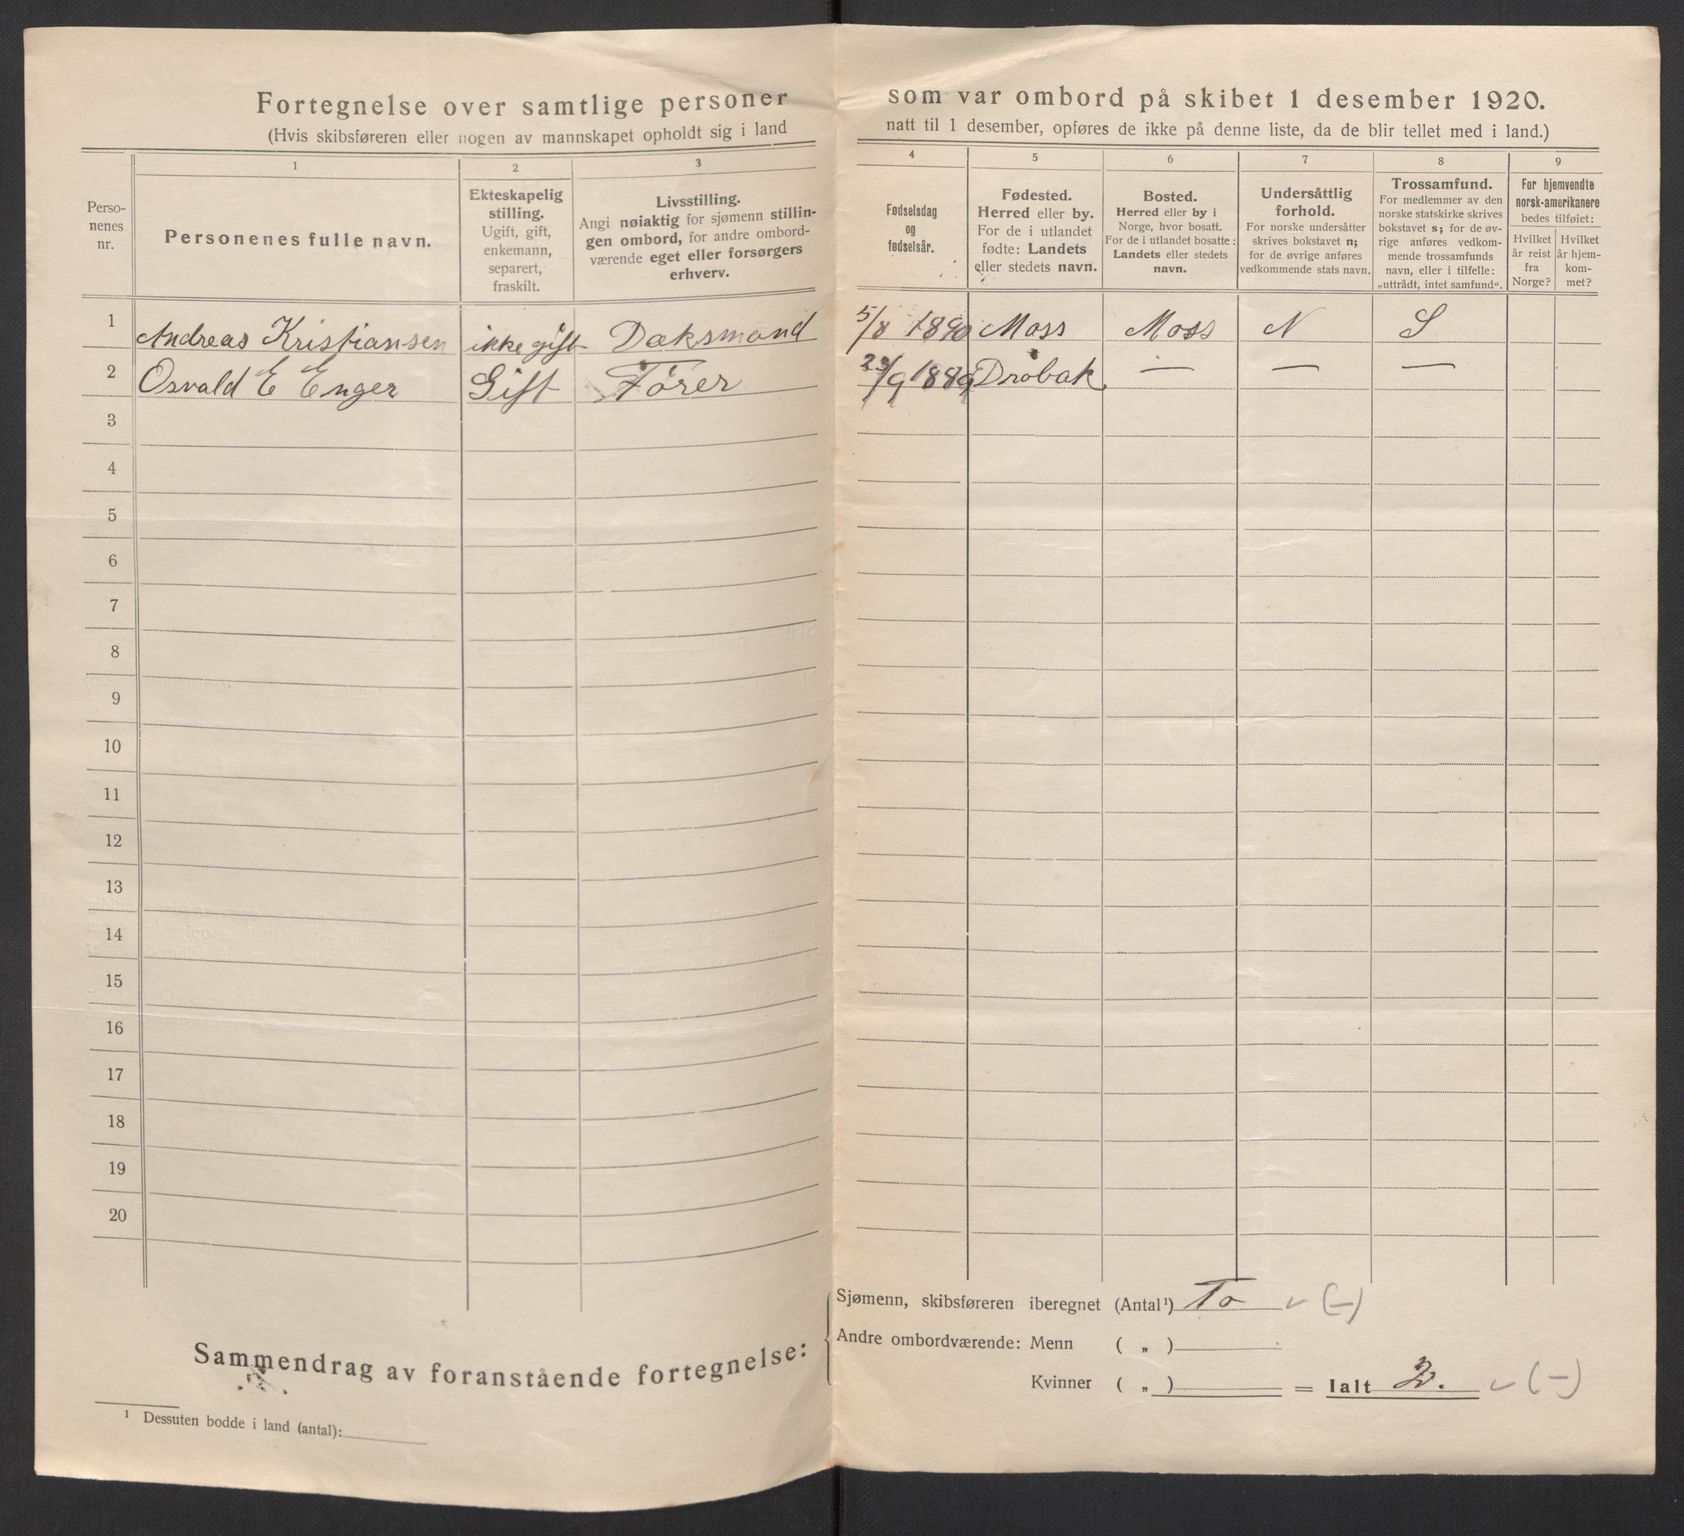 Fortegnelse over samtlige personer som var ombord på skibet 1 desember 1920.
(Hvis skibsføreren eller nogen av mannskapet opholdt sig i land natt til 1 desember, opføres de ikke på denne liste, da de blir tellet med i land.)
Perso-
nenes
nr.
1
Personenes fulle navn.
2
Ekteskapelig
stilling.
Ugift, gift,
enkemann,
separert,
fraskilt.
3
Livsstilling.
Angi nøiaktig for sjømenn stillin-
gen ombord, for andre ombord-
værende eget eller forsørgers
erhverv.
4
Fødselsdag
og
fødselsår.
5
Fødested.
Herred eller by.
For de i utlandet
fødte: Landets
eller stedets navn.
6
Bosted.
Herred eller by i
Norge, hvor bosatt.
For de i utlandet bosatte:
Landets eller stedets
navn.
7
Undersåttlig
forhold.
For norske undersåtter
skrives bokstavet n;
for de øvrige anføres
vedkommende stats navn.
8
Trossamfund.
For medlemmer av den
norske statskirke skrives
bokstavet s; for de øv-
rige anføres vedkom-
mende trossamfunds
navn, eller i tilfelle:
„uttrådt, intet samfund“.
9
For hjemvendte
norsk-amerikanere
bedes tilføiet:
Hvilket
år reist
fra
Norge?
Hvilket
år hjem-
kom-
met?
1 Andreas Kristiansen ikke gift Dæksmand 5/8 1890 Moss Moss N S
2 Osvald E Enger Gift Förer 23/9 1889 Drøbak — — —
3
4
5
6
7
8
9
10
11
12
13
14
15
16
17
18
19
20
Sammendrag av foranstående fortegnelse:
Sjømenn, skibsføreren iberegnet (Antal¹) To (—)
Andre ombordværende: Menn ( „ )
Kvinner ( „ ) = Ialt 2. (—)
¹ Dessuten bodde i land (antal):